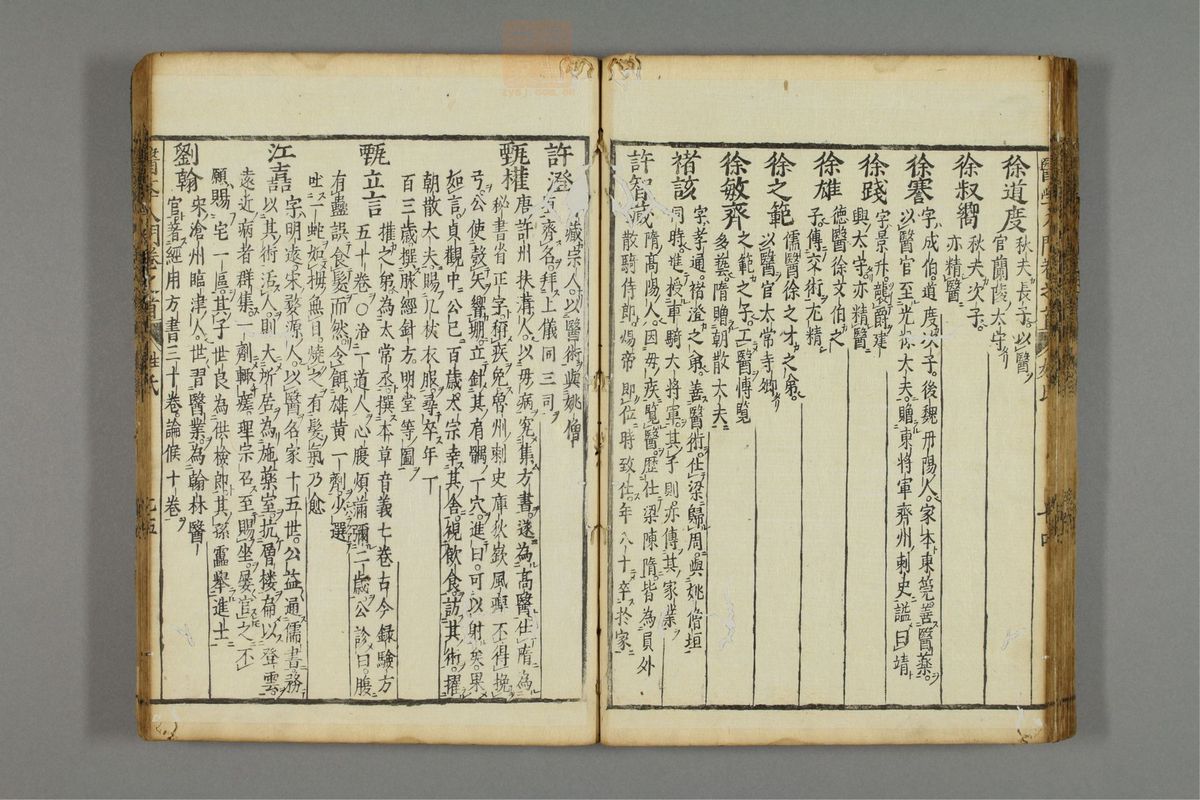 徐道度 秋夫長子以醫
官蘭陵太守
徐叔嚮 秋夫次子
亦精醫
徐謇 字成伯道度次子後魏丹陽人家本東莞善醫藥
以醫官至光祿大夫贈東將軍齊州刺史諡曰靖
徐踐 字景升襲爵建
興太守亦精醫
徐雄 德醫徐文伯之
子傳父術尤精
徐之範 儒醫徐之才之弟
以醫官太常寺卿
徐敏齊 之範之子工醫博覽
多藝隋贈朝散大夫
褚該 字孝通褚澄之弟善醫術仕梁歸周與姚僧垣
同時進授車騎大將軍其子則亦傳其家業
許智藏 隋高陽人因母疾覽醫歷仕梁陳隋皆為員外
散騎侍郎煬帝即位時致仕年八十卒於家
許澄 藏宗人以醫術與姚僧
垣齊名拜上儀同三司
甄權 唐許州扶溝人以母病究集方書遂為高醫仕隋為
秘書省正字稱疾免魯州刺史庫狄嶔風痺不得挽
弓公使彀矢嚮堋立針其肩髃一穴進曰可以射矣果
如言貞觀中公已百歲太宗幸其舍視飲食訪其術擢
朝散大夫賜几杖衣服尋卒年一
百三歲撰脉經針方明堂等圖
甄立言 權之弟為太常丞撰本草音義七卷古今錄驗方
五十卷○治一道人心腹煩滿彌二歲公診曰腹
有蠱誤食髮而然令餌雄黃一劑少選
吐一蛇如拇無目燒之有髮氣乃愈
江喜 字明遠宋婺源人以醫名家十五世公益通儒書務
以其術活人則大所居為施藥室抗層樓扁以登雲
遠近病者群集一劑輒瘥理宗召至賜坐晏官之不
願賜宅一區其子世良為供檢郎其孫靁舉進士
劉翰 宋滄州臨津人世習醫業為翰林醫
官著經用方書三十卷論候十卷
姓氏